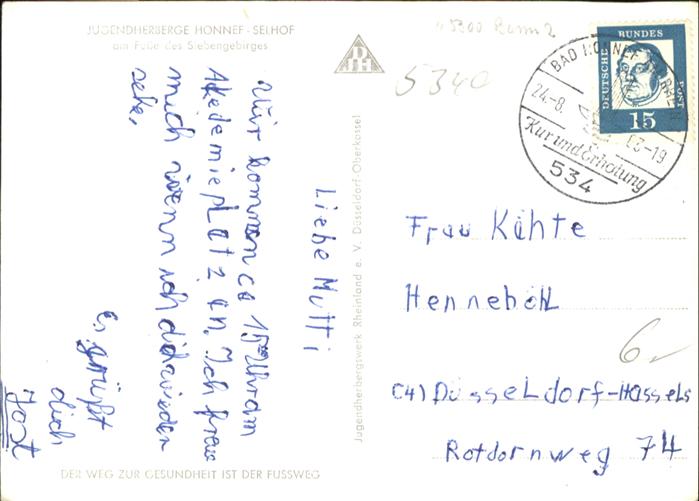 JUGENDHERBERGE HONNEF - SELHOF
am Fuße des Siebengebirges
DJH
5340
BAD HONNEF
24.-8.
63-19
Kur und Erholung
534
DEUTSCHE BUNDES POST
15
Liebe Mutti
Wir kommen ca 15 Uhr am
Akademieplatz an. Ich freue
mich wenn ich dich wieder
sehe,
Es grüßt
dich
Jost
Jugendherbergswerk Rheinland e. V. Düsseldorf-Oberkassel
Frau Käthe
Henneböhl
(4) Düsseldorf-Hassels
Rotdornweg 74
6,-
DER WEG ZUR GESUNDHEIT IST DER FUSSWEG